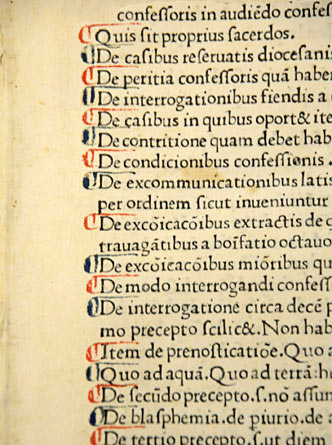 confeſſoris in audiēdo confeſ
Quis ſit proprius ſacerdos.
De caſibus reſeruatis dioceſani
De peritia confeſſoris quā habe
De interrogationibus fiendis a
De caſibus in quibus oport& ite
De contritione quam debet hab
De condicionibus confeſſionis .
De excommunicationibus latis
per ordinem ſicut inueniuntur
De excōicacōibus extractis de
trauagātibus a boīfatio octauo
De excōicacōibus miōribus qu
De modo interrogandi confeſſ
De interrogatione circa decē p
mo precepto ſcilic&. Non hab
Item de prenoſticatiōe. Quo a
Quo ad aquā. Quo ad terrā: he
De ſecūdo precepto. ſ. nō aſſun
De blaſphemia. de piurio. de a
De tertio precepto. ſut diem